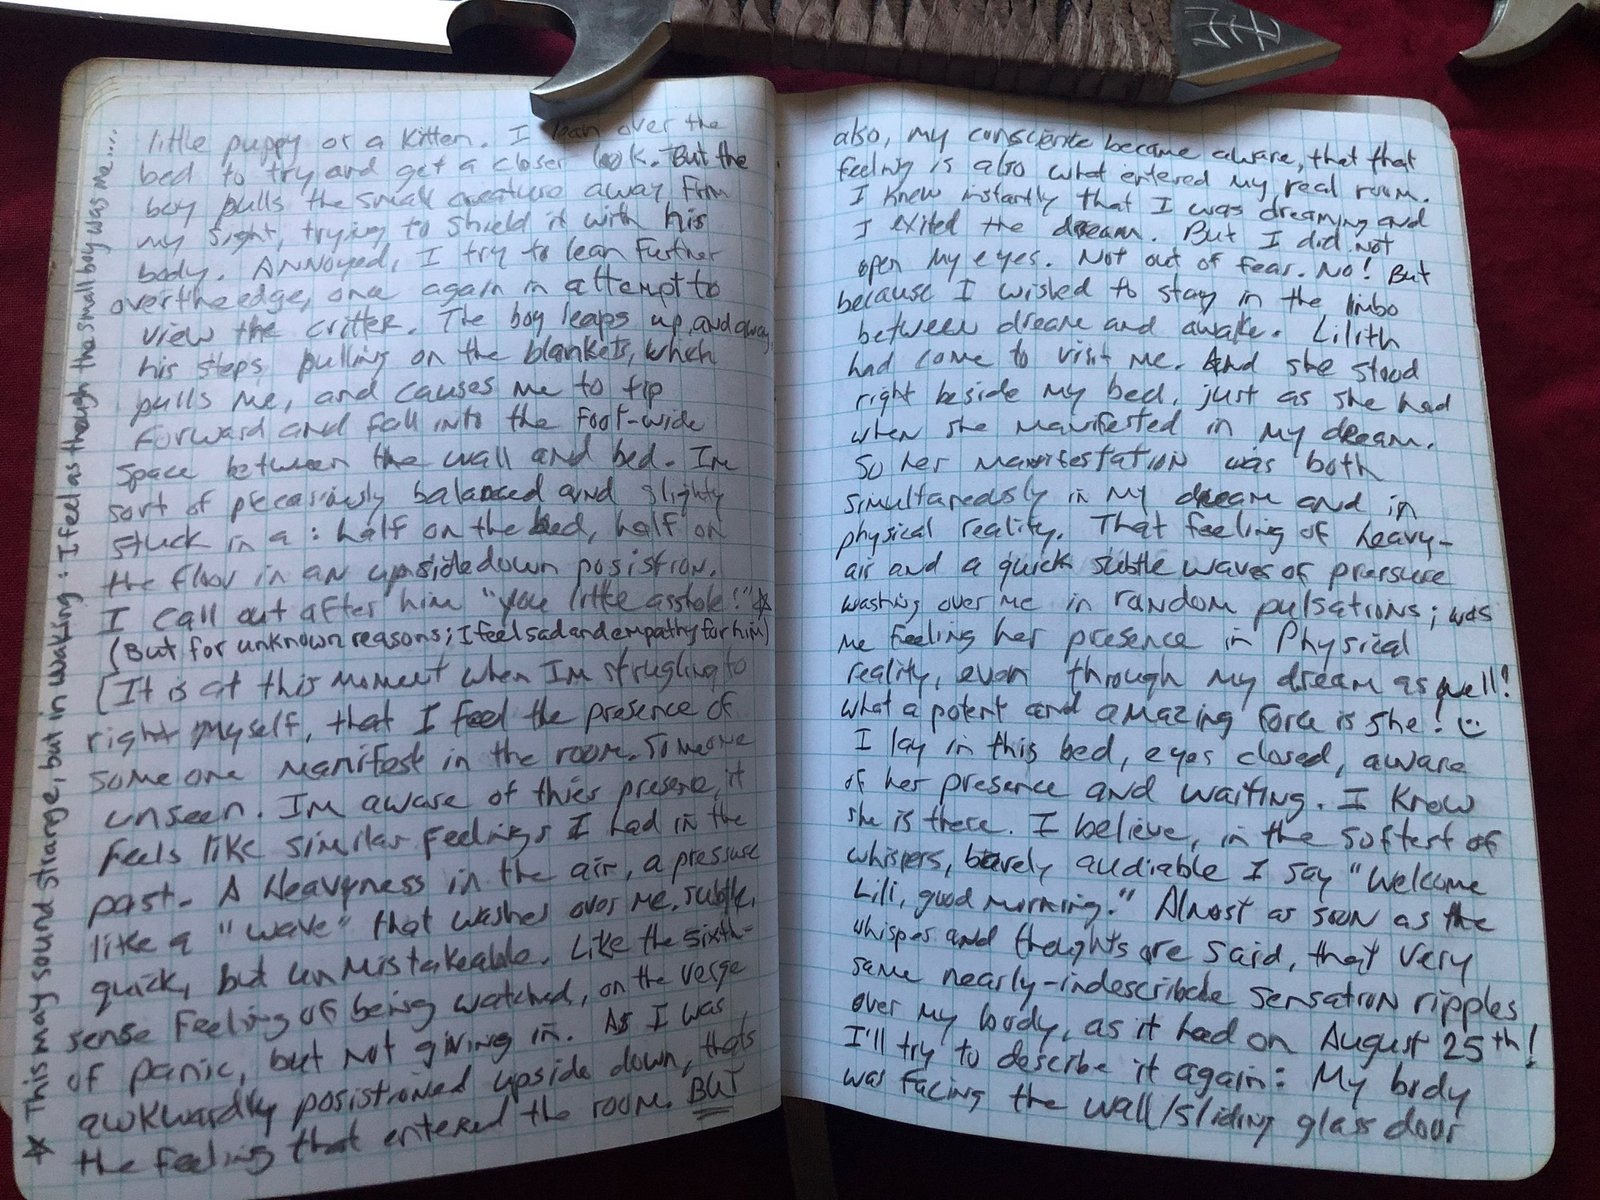 little puppy or a kitten. I lean over the
bed to try and get a closer look. But the
boy pulls the small creature away from
my sight, trying to shield it with his
body. Annoyed, I try to lean further
over the edge, one again in attempt to
view the critter. The boy leaps up, and away,
his steps pulling on the blankets, which
pulls me, and causes me to tip
forward and fall into the foot-wide
space between the wall and bed. Im
sort of precariously balanced and slighty
stuck in a : half on the bed, half on
the floor in an upside down posistion.
I call out after him "you little asshole!" ☆
(But for unknown reasons; I feel sad and empathy for him)
(It is at this moment when Im strugling to
right myself, that I feel the presence of
someone manifest in the room. Someone
unseen. Im aware of thier presene, it
feels like similar feelings I had in the
past. A Heavyness in the air, a pressure
like a "wave" that washes over me. subtle,
quick, but unmistakeable. Like the sixth-
sense feeling of being watched, on the verge
of panic, but not giving in. As I was
awkwardly posistioned upside down, thats
the feeling that entered the room. BUT
☆ This may sound strange, but in waking : I feel as though the small boy was me...
also, my conscience became aware, that that
feeling is also what entered my real room.
I knew instantly that I was dreaming and
I exited the dream. But I did not
open my eyes. Not out of fear. No! But
because I wished to stay in the limbo
between dream and awake. Lilith
had come to visit me. And she stood
right beside my bed, just as she had
when she manifested in my dream.
So her manifestation was both
simultaneously in my dream and in
physical reality. That feeling of heavy-
air and a quick subtle waves of pressure
washing over me in random pulsations; was
me feeling her presence in Physical
reality, even through my dream as well!
what a potent and amazing force is she! :)
I lay in this bed, eyes closed, aware
of her presence and waiting. I know
she is there. I believe, in the softest of
whispers, barely audiable I say "Welcome
Lili, good morning." Almost as soon as the
whisper and thoughts are said, that very
same nearly-indescribable sensation ripples
over my body, as it had on August 25th!
I'll try to describe it again: My body
was facing the wall/sliding glass door